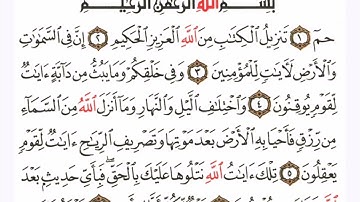 بِسْمِ اللَّهِ الرَّحْمَٰنِ الرَّحِيمِ
حمٓ ١ تَنزِيلُ ٱلْكِتَٰبِ مِنَ ٱللَّهِ ٱلْعَزِيزِ ٱلْحَكِيمِ ٢ إِنَّ فِى ٱلسَّمَٰوَٰتِ
وَٱلْأَرْضِ لَءَايَٰتٍ لِّلْمُؤْمِنِينَ ٣ وَفِى خَلْقِكُمْ وَمَا يَبُثُّ مِن دَآبَّةٍ ءَايَٰتٌ
لِّقَوْمٍ يُوقِنُونَ ٤ وَٱخْتِلَٰفِ ٱلَّيْلِ وَٱلنَّهَارِ وَمَآ أَنزَلَ ٱللَّهُ مِنَ ٱلسَّمَآءِ
مِن رِّزْقٍ فَأَحْيَا بِهِ ٱلْأَرْضَ بَعْدَ مَوْتِهَا وَتَصْرِيفِ ٱلرِّيَٰحِ ءَايَٰتٌ لِّقَوْمٍ
يَعْقِلُونَ ٥ تِلْكَ ءَايَٰتُ ٱللَّهِ نَتْلُوهَا عَلَيْكَ بِٱلْحَقِّ ۖ فَبِأَىِّ حَدِيثٍۭ بَعْدَ